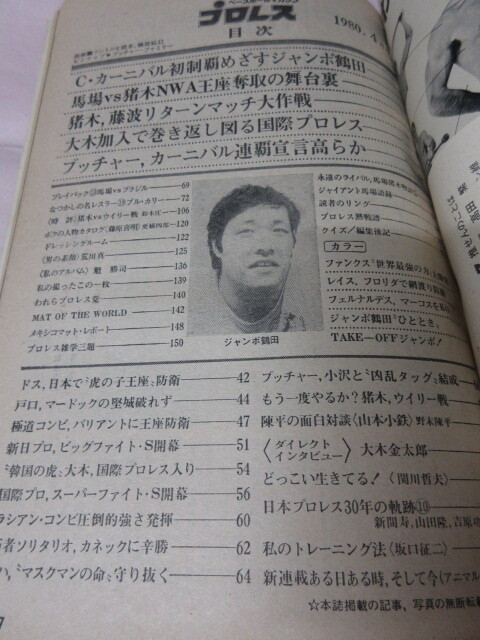 ベースボールマガジン
プロレス
目次
1980・4
C・カーニバル初制覇めざすジャンボ鶴田
馬場vs猪木NWA王座奪取の舞台裏
猪木，藤波リターンマッチ大作戦
大木加入で巻き返し図る国際プロレス
ブッチャー，カーニバル連覇宣言高らか
プレイバック 馬場vsブラジル 69
なつかしの名レスラー ブル・カリー 72
〈時評〉猪木vsウイリー戦 106
ボクの人物カタログ〈藤原喜明〉 120
ドレッシングルーム 122
〈男の素顔〉荒川真 125
〈私のアルバム〉魁勝司 136
私の撮ったこの一枚 139
われらプロレス党 140
MAT OF THE WORLD 142
メキシコマット・レポート 148
プロレス雑学三題 150
ジャンボ鶴田
永遠のライバル，馬場猪木
ジャイアント馬場語録
読者のリング
プロレス熱戦譜
クイズ／編集後記
カラー
ファンクス“世界最強の力
レイス，フロリダで綱渡り防衛
フェルナンデス，マーコスを
ジャンボ鶴田“ひととき”
TAKE—OFFジャンボ！
ドス，日本で“虎の子王座”防衛 42
戸口，マードックの堅城破れず 44
極道コンビ，バリアントに王座防衛 47
新日プロ，ビッグファイト・S開幕 51
“韓国の虎”大木，国際プロレス入り 54
国際プロ，スーパーファイト・S開幕 56
ラシアン・コンビ圧倒的強さ発揮 60
者ソリタリオ，カネックに辛勝 62
“マスクマンの命”守り抜く 64
ブッチャー，小沢と“凶乱タッグ”結成
もう一度やるか？猪木，ウイリー戦
陳平の面白対談〈山本小鉄〉野末陳平
〈ダイレクトインタビュー〉大木金太郎
どっこい生きてる！〈関川哲夫〉
日本プロレス30年の軌跡⑩
新間寿，山田隆，吉原功
私のトレーニング法〈坂口征二〉
新連載ある日ある時，そして今〈アニマル
☆本誌掲載の記事，写真の無断転